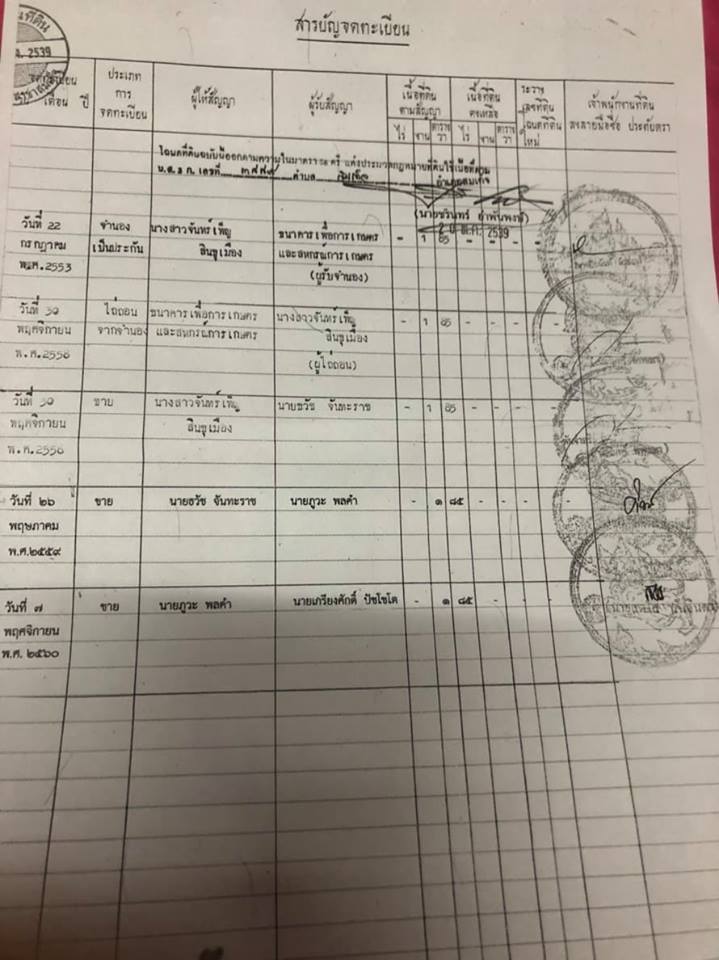 สารบัญจดทะเบียน
2539
จดทะเบียน
เดือน ปี
ประเภท
การ
จดทะเบียน
ผู้ให้สัญญา
ผู้รับสัญญา
เนื้อที่ดิน
ตามสัญญา
ไร่ งาน ตาราง
วา
เนื้อที่ดิน
คงเหลือ
ไร่ งาน ตาราง
วา
ระวาง
เลขที่ดิน
โฉนดที่ดิน
ใหม่
เจ้าพนักงานที่ดิน
ลงลายมือชื่อ ประทับตรา
โฉนดที่ดินฉบับนี้ออกตามความในมาตรา ๕๘ ตรี แห่งประมวลกฎหมายที่ดินใช้เนื้อที่ตาม
น.ส.๓ ก. เลขที่ ตำบล อำเภอสมเด็จ
2539
วันที่ 22 จำนอง นางสาวจันทร์เพ็ญ ธนาคารเพื่อการเกษตร - 1 85 - - - -
กรกฎาคม เป็นประกัน สินธุเมือง และสหกรณ์การเกษตร
พ.ศ.2553 (ผู้รับจำนอง)
วันที่ 30 ไถ่ถอน ธนาคารเพื่อการเกษตร นางสาวจันทร์เพ็ญ - 1 85 - - - -
พฤศจิกายน จากจำนอง และสหกรณ์การเกษตร สินธุเมือง
พ.ศ.2556 (ผู้ไถ่ถอน)
วันที่ 30 ขาย นางสาวจันทร์เพ็ญ นายธวัช จันทะราช - 1 85 - - - -
พฤศจิกายน สินธุเมือง
พ.ศ.2556
วันที่ ๒๖ ขาย นายธวัช จันทะราช นายภูวะ พลคำ - ๑ ๘๕ - - - -
พฤษภาคม
พ.ศ.๒๕๕๙
วันที่ ๗ ขาย นายภูวะ พลคำ นายเกรียงศักดิ์ ปัชโชโต - ๑ ๘๕ - - - -
พฤศจิกายน
พ.ศ. ๒๕๖๐